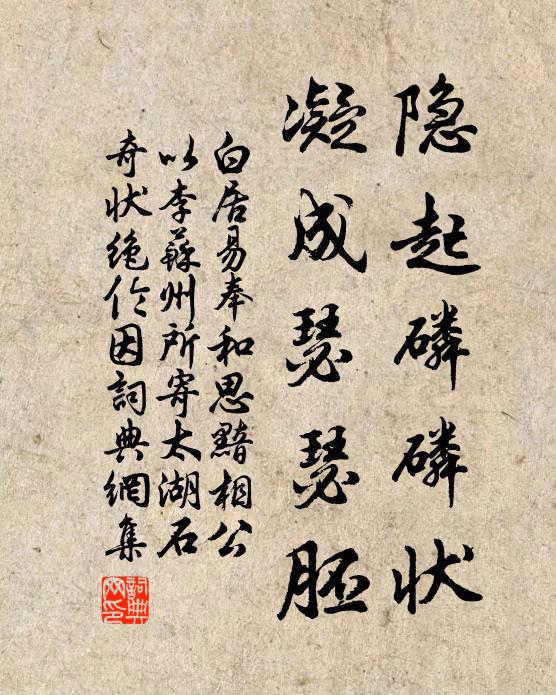 隐起磷磷状
凝成瑟瑟胚
白居易奉和思黯相公
以李蘇州所寄太湖石
奇状绝伦因詞典網集
詞典
网印